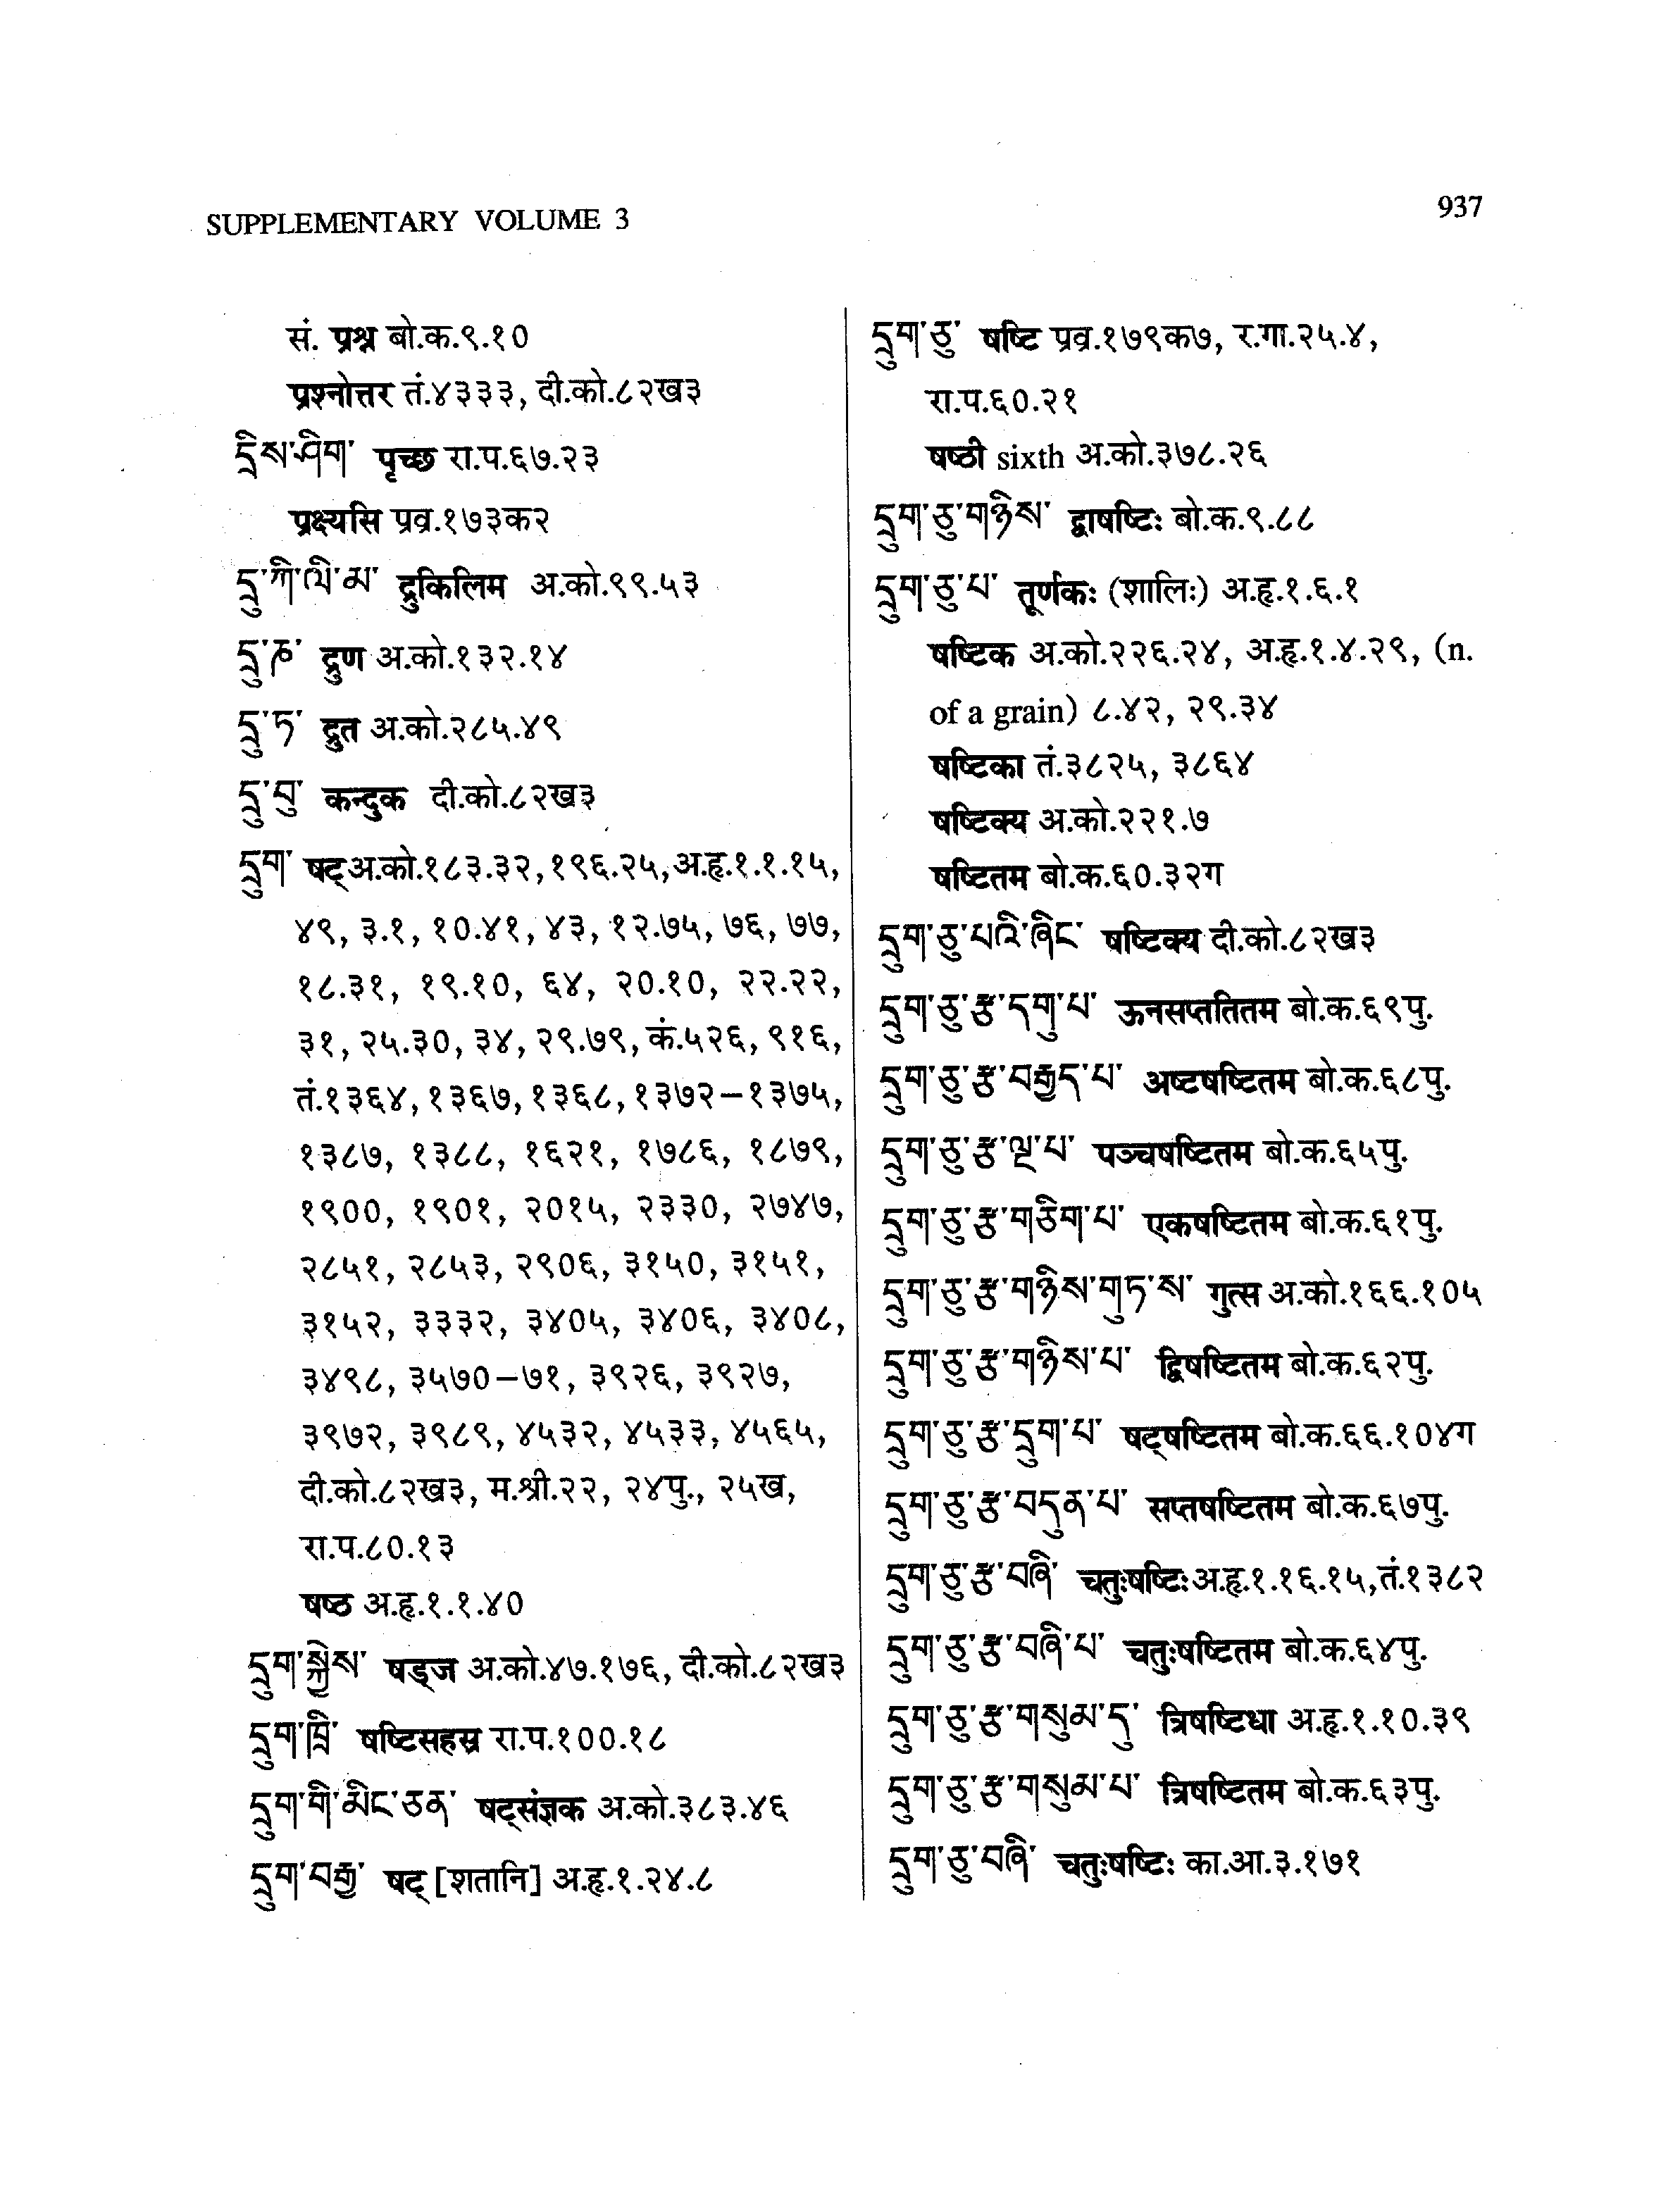 SUPPLEMENTARY VOLUME 3
937
सं. प्रश्न बो.क.९.१०
प्रश्नोत्तर तं.४३३३, दी.को.८२ख३
དྲིས་ཤིག་ पृच्छ रा.प.६७.२३
प्रक्ष्यसि प्रव्र.१७३क२
དྲུ་ཀི་ལི་མ་ द्रुकिलिम अ.को.९९.५३
དྲུ་ཎ་ द्रुण अ.को.१३२.१४
དྲུ་ཏ་ द्रुत अ.को.२८५.४९
དྲུ་བུ་ कन्दुक दी.को.८२ख३
དྲུག་ षट् अ.को.१८३.३२, १९६.२५, अ.हृ.१.१.१५,
४९, ३.१, १०.४१, ४३, १२.७५, ७६, ७७,
१८.३१, १९.१०, ६४, २०.१०, २२.२२,
३१, २५.३०, ३४, २९.७९, कं.५२६, ९१६,
तं.१३६४, १३६७, १३६८, १३७२–१३७५,
१३८७, १३८८, १६२१, १७८६, १८७९,
१९००, १९०१, २०१५, २३३०, २७४७,
२८५१, २८५३, २९०६, ३१५०, ३१५१,
३१५२, ३३३२, ३४०५, ३४०६, ३४०८,
३४९८, ३५७०–७१, ३९२६, ३९२७,
३९७२, ३९८९, ४५३२, ४५३३, ४५६५,
दी.को.८२ख३, म.श्री.२२, २४पु., २५ख,
रा.प.८०.१३
षष्ठ अ.हृ.१.१.४०
དྲུག་སྐྱེས་ षड्ज अ.को.४७.१७६, दी.को.८२ख३
དྲུག་ཁྲི་ षष्टिसहस्र रा.प.१००.१८
དྲུག་གི་མིང་ཅན་ षट्संज्ञक अ.को.३८३.४६
དྲུག་བརྒྱ་ षट् [शतानि] अ.हृ.१.२४.८
དྲུག་ཅུ་ षष्टि प्रव्र.१७९क७, र.गा.२५.४,
रा.प.६०.२१
षष्ठी sixth अ.को.३७८.२६
དྲུག་ཅུ་གཉིས་ द्वाषष्टिः बो.क.९.८८
དྲུག་ཅུ་པ་ तूर्णकः (शालिः) अ.हृ.१.६.१
षष्टिक अ.को.२२६.२४, अ.हृ.१.४.२९, (n.
of a grain) ८.४२, २९.३४
षष्टिका तं.३८२५, ३८६४
षष्टिक्य अ.को.२२१.७
षष्टितम बो.क.६०.३२ग
དྲུག་ཅུ་པའི་ཞིང་ षष्टिक्य दी.को.८२ख३
དྲུག་ཅུ་རྩ་དགུ་པ་ ऊनसप्ततितम बो.क.६९पु.
དྲུག་ཅུ་རྩ་བརྒྱད་པ་ अष्टषष्टितम बो.क.६८पु.
དྲུག་ཅུ་རྩ་ལྔ་པ་ पञ्चषष्टितम बो.क.६५पु.
དྲུག་ཅུ་རྩ་གཅིག་པ་ एकषष्टितम बो.क.६१पु.
དྲུག་ཅུ་རྩ་གཉིས་གུཏ་ས་ गुत्स अ.को.१६६.१०५
དྲུག་ཅུ་རྩ་གཉིས་པ་ द्विषष्टितम बो.क.६२पु.
དྲུག་ཅུ་རྩ་དྲུག་པ་ षट्षष्टितम बो.क.६६.१०४ग
དྲུག་ཅུ་རྩ་བདུན་པ་ सप्तषष्टितम बो.क.६७पु.
དྲུག་ཅུ་རྩ་བཞི་ चतुःषष्टिः अ.हृ.१.१६.१५, तं.१३८२
དྲུག་ཅུ་རྩ་བཞི་པ་ चतुःषष्टितम बो.क.६४पु.
དྲུག་ཅུ་རྩ་གསུམ་དུ་ त्रिषष्टिधा अ.हृ.१.१०.३९
དྲུག་ཅུ་རྩ་གསུམ་པ་ त्रिषष्टितम बो.क.६३पु.
དྲུག་ཅུ་བཞི་ चतुःषष्टिः का.आ.३.१७१